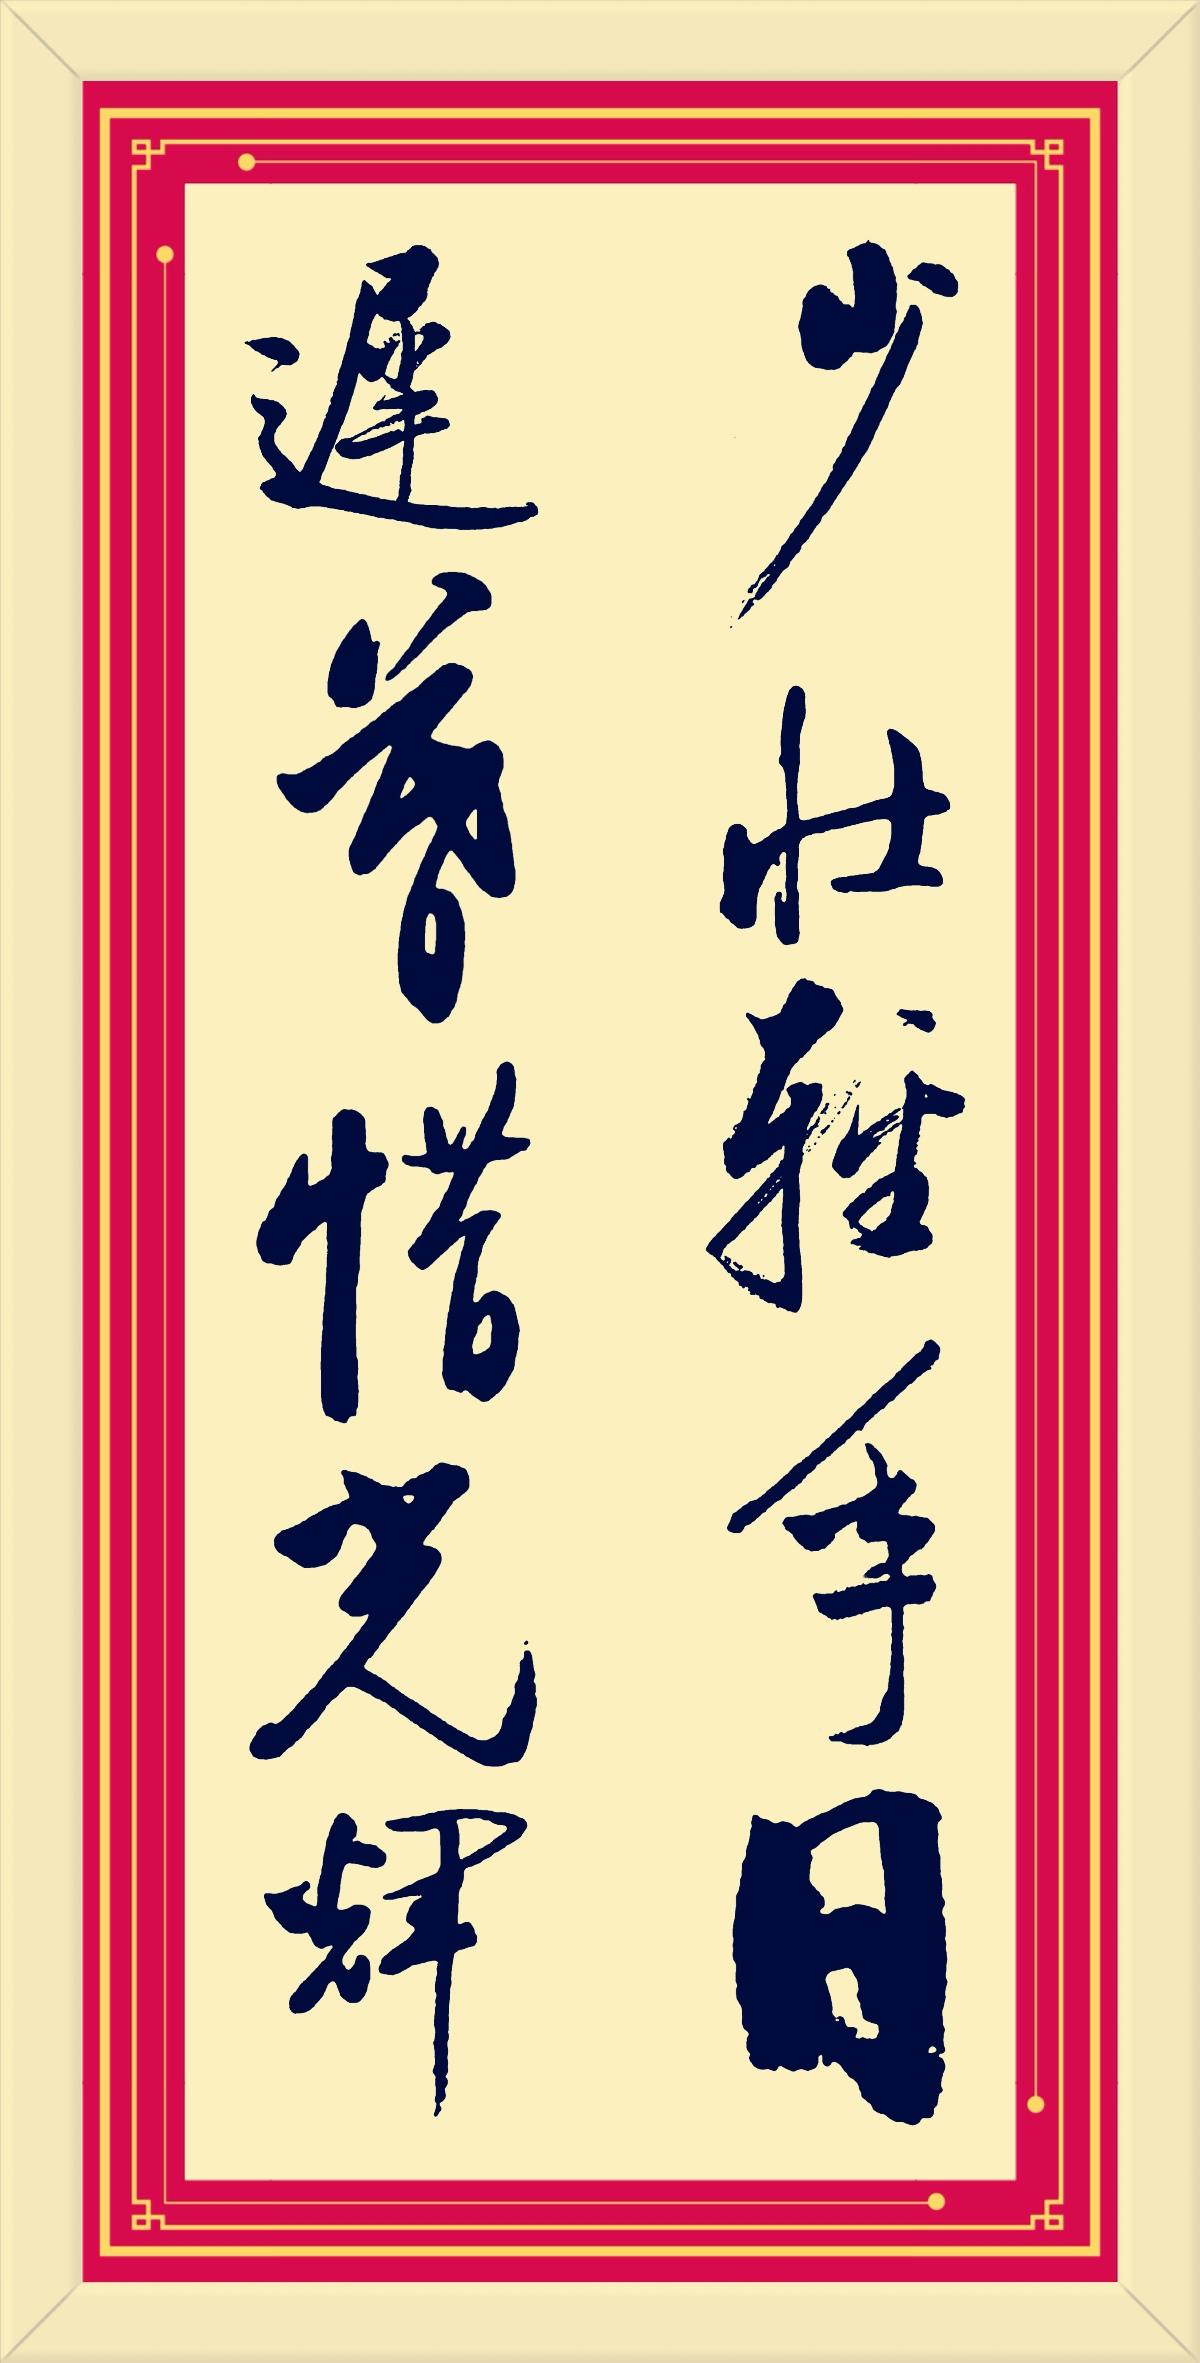 少壯輕年月
遲暮惜光輝